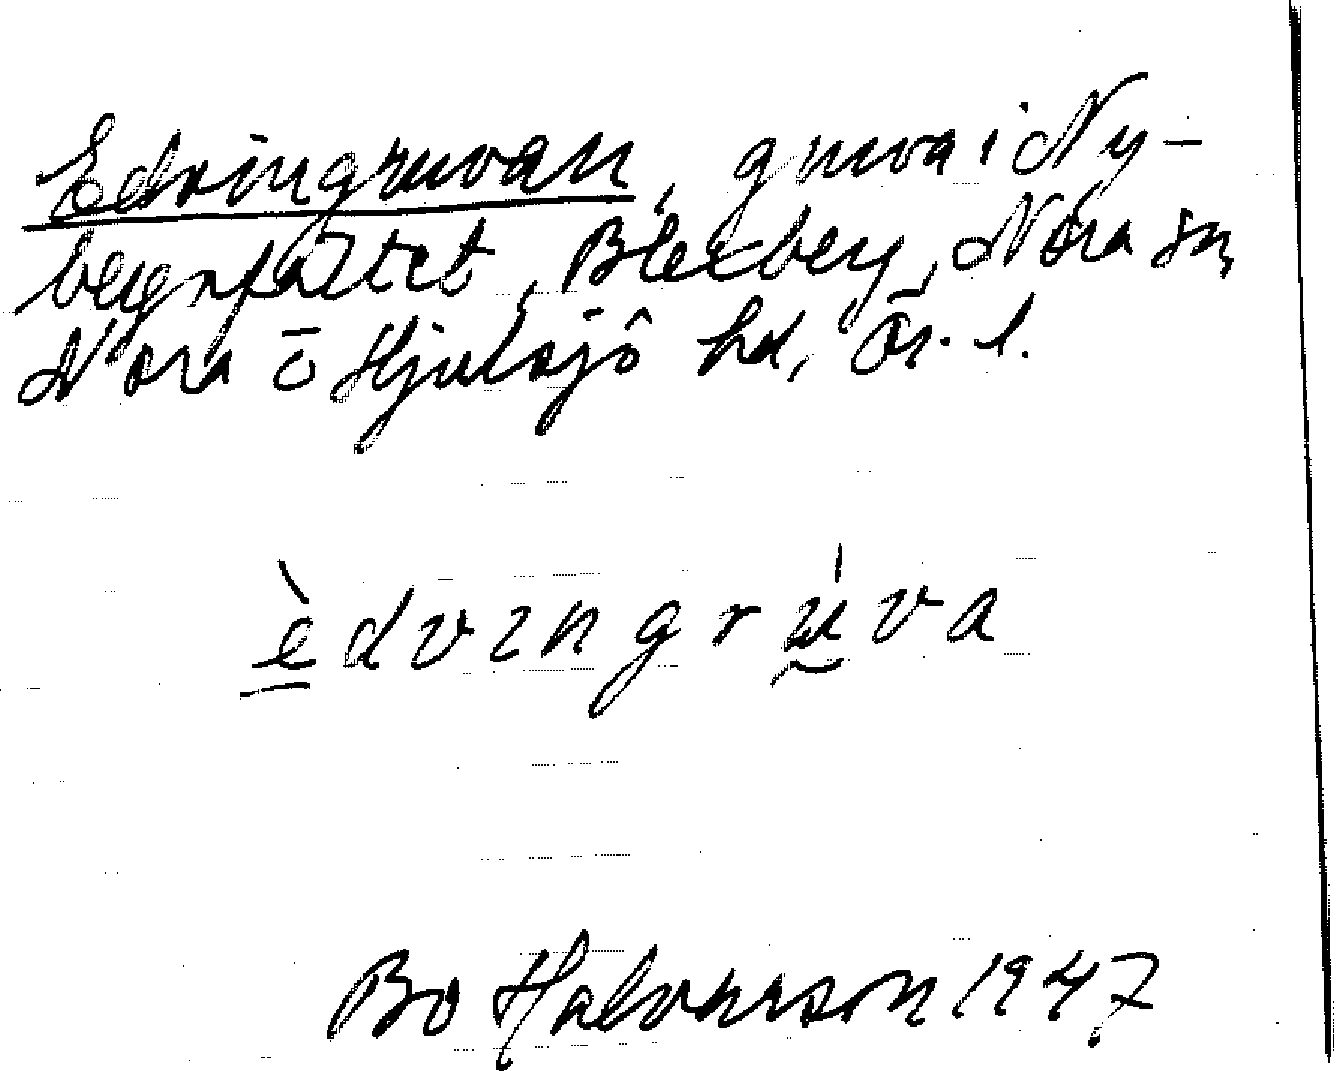 Edvingruvan, gruva i Ny-
bergsfältet, Blexberg, Nora sn,
Nora o Hjulsjö hd, Ör. l.
èdvingrúva
Bo Halvarsson 1947